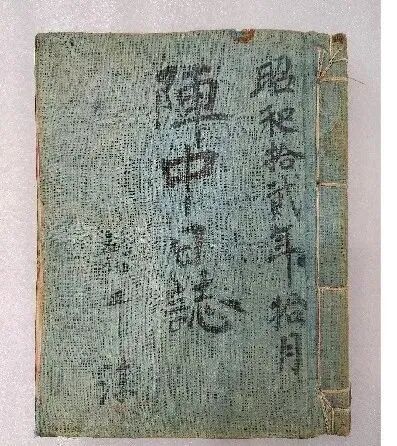 昭和拾弐年拾月
陣中日誌